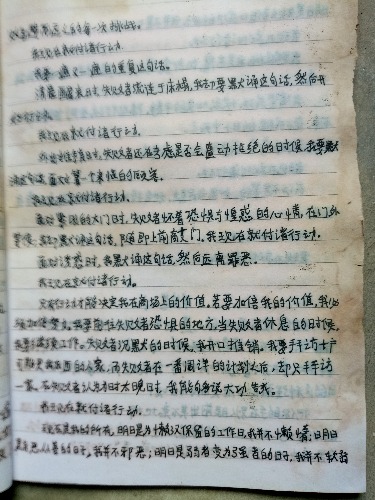 我现在就付诸行动。
我要一遍又一遍的重复这句话。
清晨醒来时,失败者流连于床榻,我却要默诵这句话,然后开
始行动。
我现在就付诸行动。
外出推销时,失败者还在考虑是否会遭到拒绝的时候,我要默
诵这句话,面对第一个来临的顾客。
我现在就付诸行动。
面对紧闭的大门时,失败者怀着恐惧与惶惑的心情,在门外
等候,我却默诵这句话,随即上前敲门。我现在就付诸行动。
面对诱惑时,我默诵这句话,然后远离罪恶。
我现在就付诸行动。
只有行动才能决定我在商场上的价值,若要加倍我的价值,我必
须加倍努力。我要前往失败者恐惧的地方,当失败者休息的时候,
我要继续工作。失败者沉默的时候,我开口推销。我要拜访十户
可能买我东西的人家,而失败者在一番周详的计划之后,却只拜访
一家。在失败者认为为时太晚时,我能够说大功告成。
我现在就付诸行动。
现在是我的所有,明日是为懒汉保留的工作日,我并不懒惰;明日
是弃恶从善的日子,我并不邪恶;明日是弱者变为强者的日子,我并不软弱